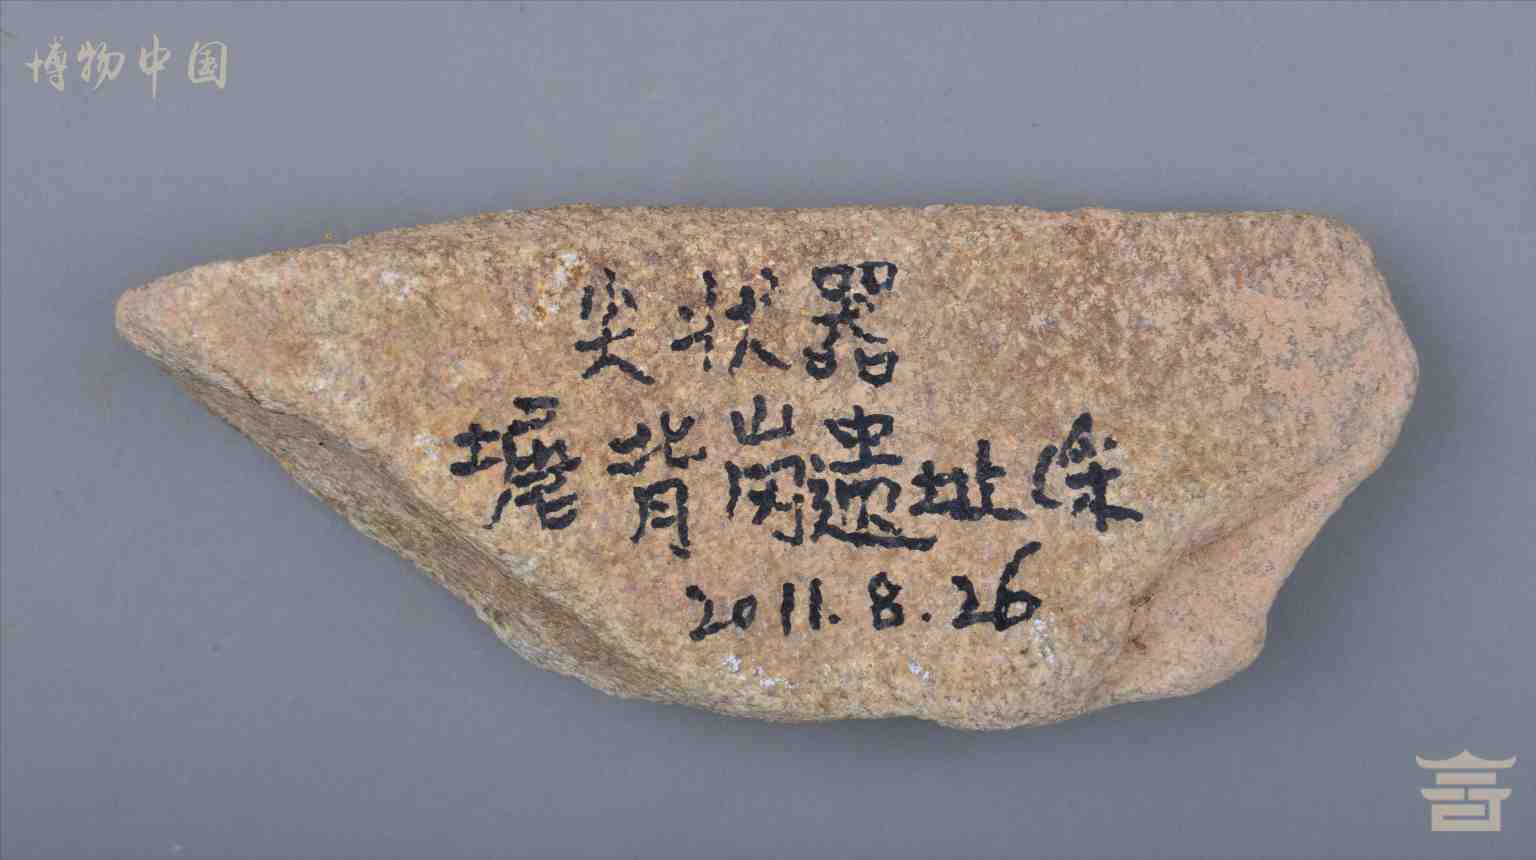 博物中国
尖状器
背岗遗址采
2011.8.26